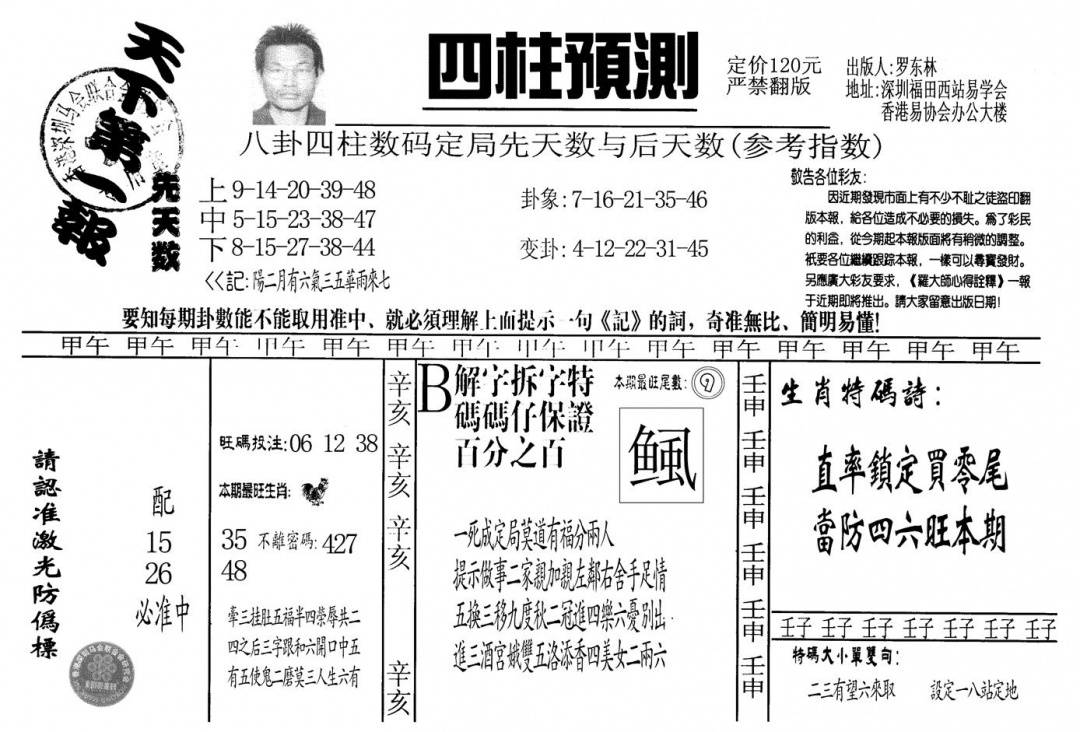 天下第一報
四柱預測
定价120元
严禁翻版
出版人:罗东林
地址:深圳福田西站易学会
香港易协会办公大楼
八卦四柱数码定局先天数与后天数(参考指数)
先天数
上 9-14-20-39-48
中 5-15-23-38-47
下 8-15-27-38-44
<<記:陽二月有六氣三五華雨來七
卦象:7-16-21-35-46
变卦:4-12-22-31-45
敬告各位彩友:
因近期發現市面上有不少不耻之徒盜印翻
版本報,給各位造成不必要的損失。爲了彩民
的利益,從今期起本報版面將有稍微的調整。
衹要各位繼續跟踪本報,一樣可以尋寶發財。
另應廣大彩友要求,《羅大師心得詮釋》一報
于近期即將推出。請大家留意出版日期!
要知每期卦數能不能取用准中、就必須理解上面提示一句《記》的詞,奇准無比、簡明易懂!
甲午 甲午 甲午 甲午 甲午 甲午 甲午 甲午 甲午 甲午 甲午 甲午 甲午 甲午 甲午
請認准激光防僞標
配
15
26
必准中
旺碼投注:06 12 38
本期最旺生肖:
35 不離密碼:427
48
牽三挂肚五福半四榮辱共二
四之后三字跟和六開口中五
有五使鬼二磨莫三人生六有
辛亥
辛亥
辛亥
辛亥
B解字拆字特
碼碼仔保證
百分之百
本期最旺尾數:9
一死成定局莫道有福分兩人
提示做事二家親加親左鄰右舍手足情
五換三移九度秋二冠進四樂六憂別出
進三酒宮娥雙五洛添香四美女二兩六
壬申
壬申
壬申
壬申
壬申
壬申
生肖特碼詩:
直率鎖定買零尾
當防四六旺本期
壬子 壬子 壬子 壬子 壬子 壬子 壬子
特碼大小單雙句:
二三有望六來取 設定一八站定地